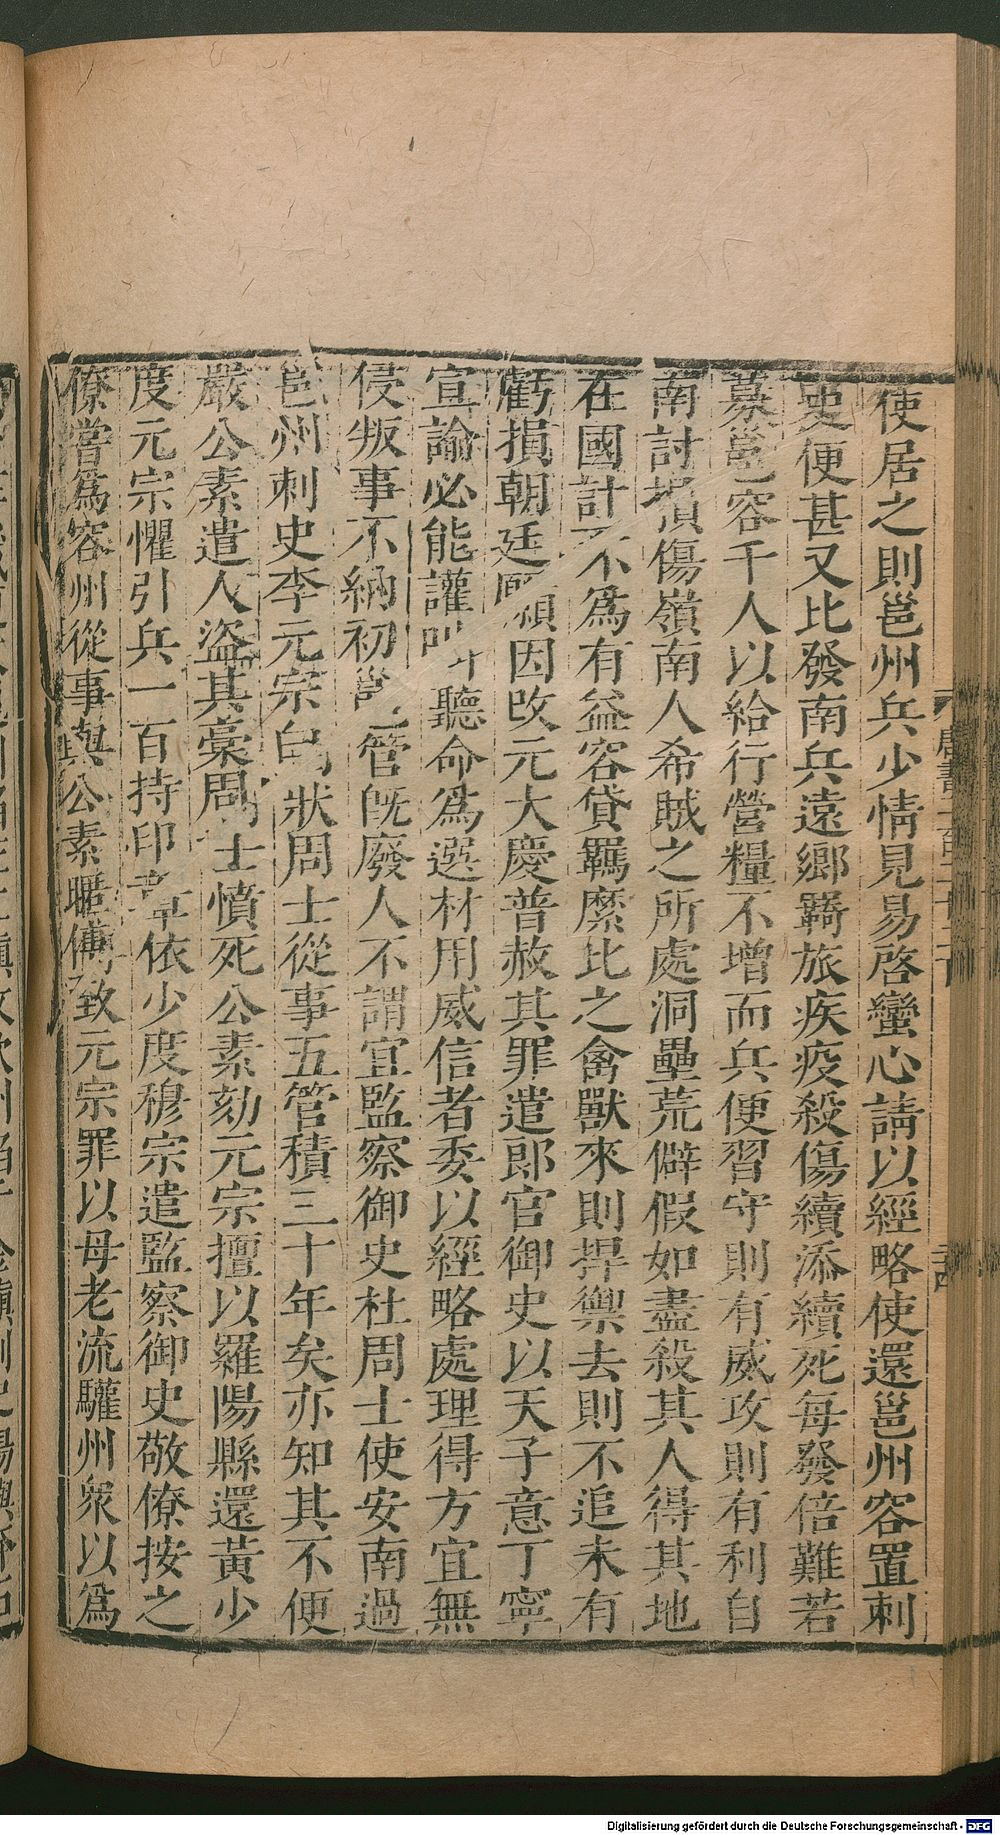 使居之則邕州兵少情見易啓蠻心請以經略使還邕州容置刺
史便甚又比發南兵遠鄉羇旅疾疫殺傷續添續死每發倍難若
募邕容千人以給行營糧不增而兵便習守則有威攻則有利自
南討損傷嶺南人希賊之所處洞壘荒僻假如盡殺其人得其地
在國計不爲有益容貸羈縻比之禽獸來則捍禦去則不追未有
虧損朝廷願因改元大慶普赦其罪遣郎官御史以天子意丁寧
宣諭必能讙叫聽命爲選材用威信者委以經略處理得方宜無
侵叛事不納初邕管旣廢人不謂宜監察御史杜周士使安南過
邕州刺史李元宗白狀周士從事五管積三十年矣亦知其不便
嚴公素遣人盜其槀周士憤死公素劾元宗擅以羅陽縣還黃少
度元宗懼引兵一百持印章依少度穆宗遣監察御史敬僚按之
僚嘗爲容州從事與公素暱傅致元宗罪以母老流驩州衆以爲
Digitalisierung gefördert durch die Deutsche Forschungsgemeinschaft - DFG